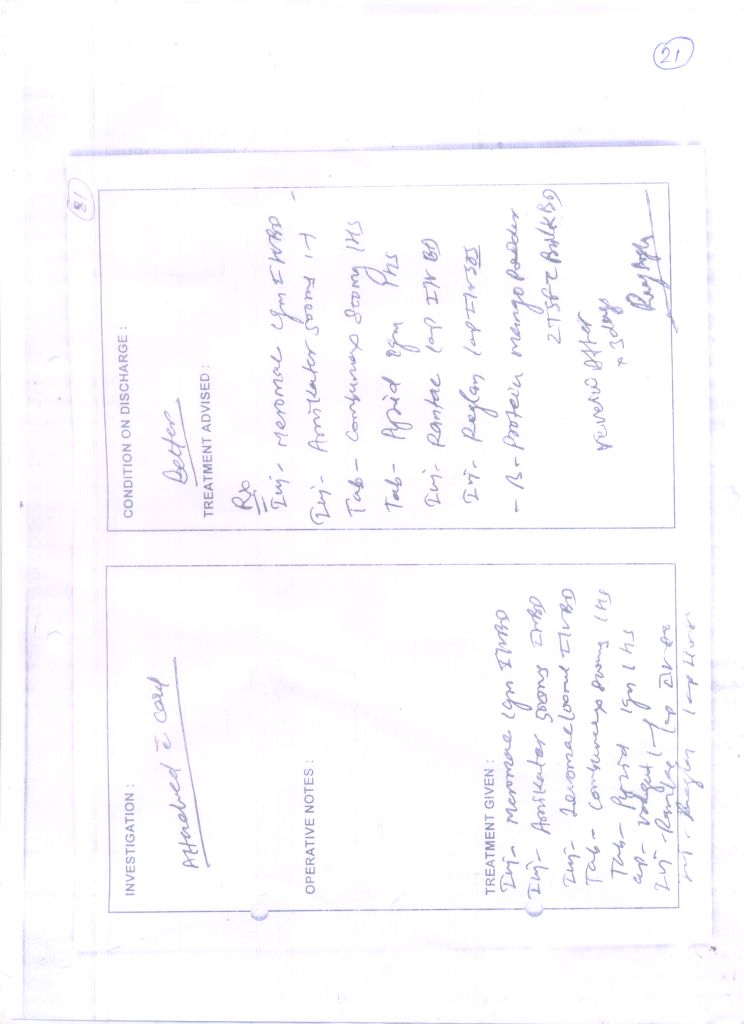 21
21
INVESTIGATION :
Attached c̄ card
OPERATIVE NOTES :
TREATMENT GIVEN :
Inj- Meromac 1gm IVBD
Inj- Amikator 500mg IVBD
Inj- 100ml IVBD
Tab- Combunex 800mg 1HS
Tab- Pyzid 1gm 1HS
cap- 1-1
Inj- Rantac 1ap IV BD
Inj- Reglan 1ap
CONDITION ON DISCHARGE :
Better
TREATMENT ADVISED :
Rx
Inj- Meromac 1gm IVBD -
Inj- Amikator 500mg 1-1
Tab- Combunex 800mg 1HS
Tab- Pyzid 2gm HS
Inj- Rantac 1ap IV BD
Inj- Reglan 1ap IV SOS
- B-Protein mango Powder
2TSF c̄ Milk BD
review After
x 3 days